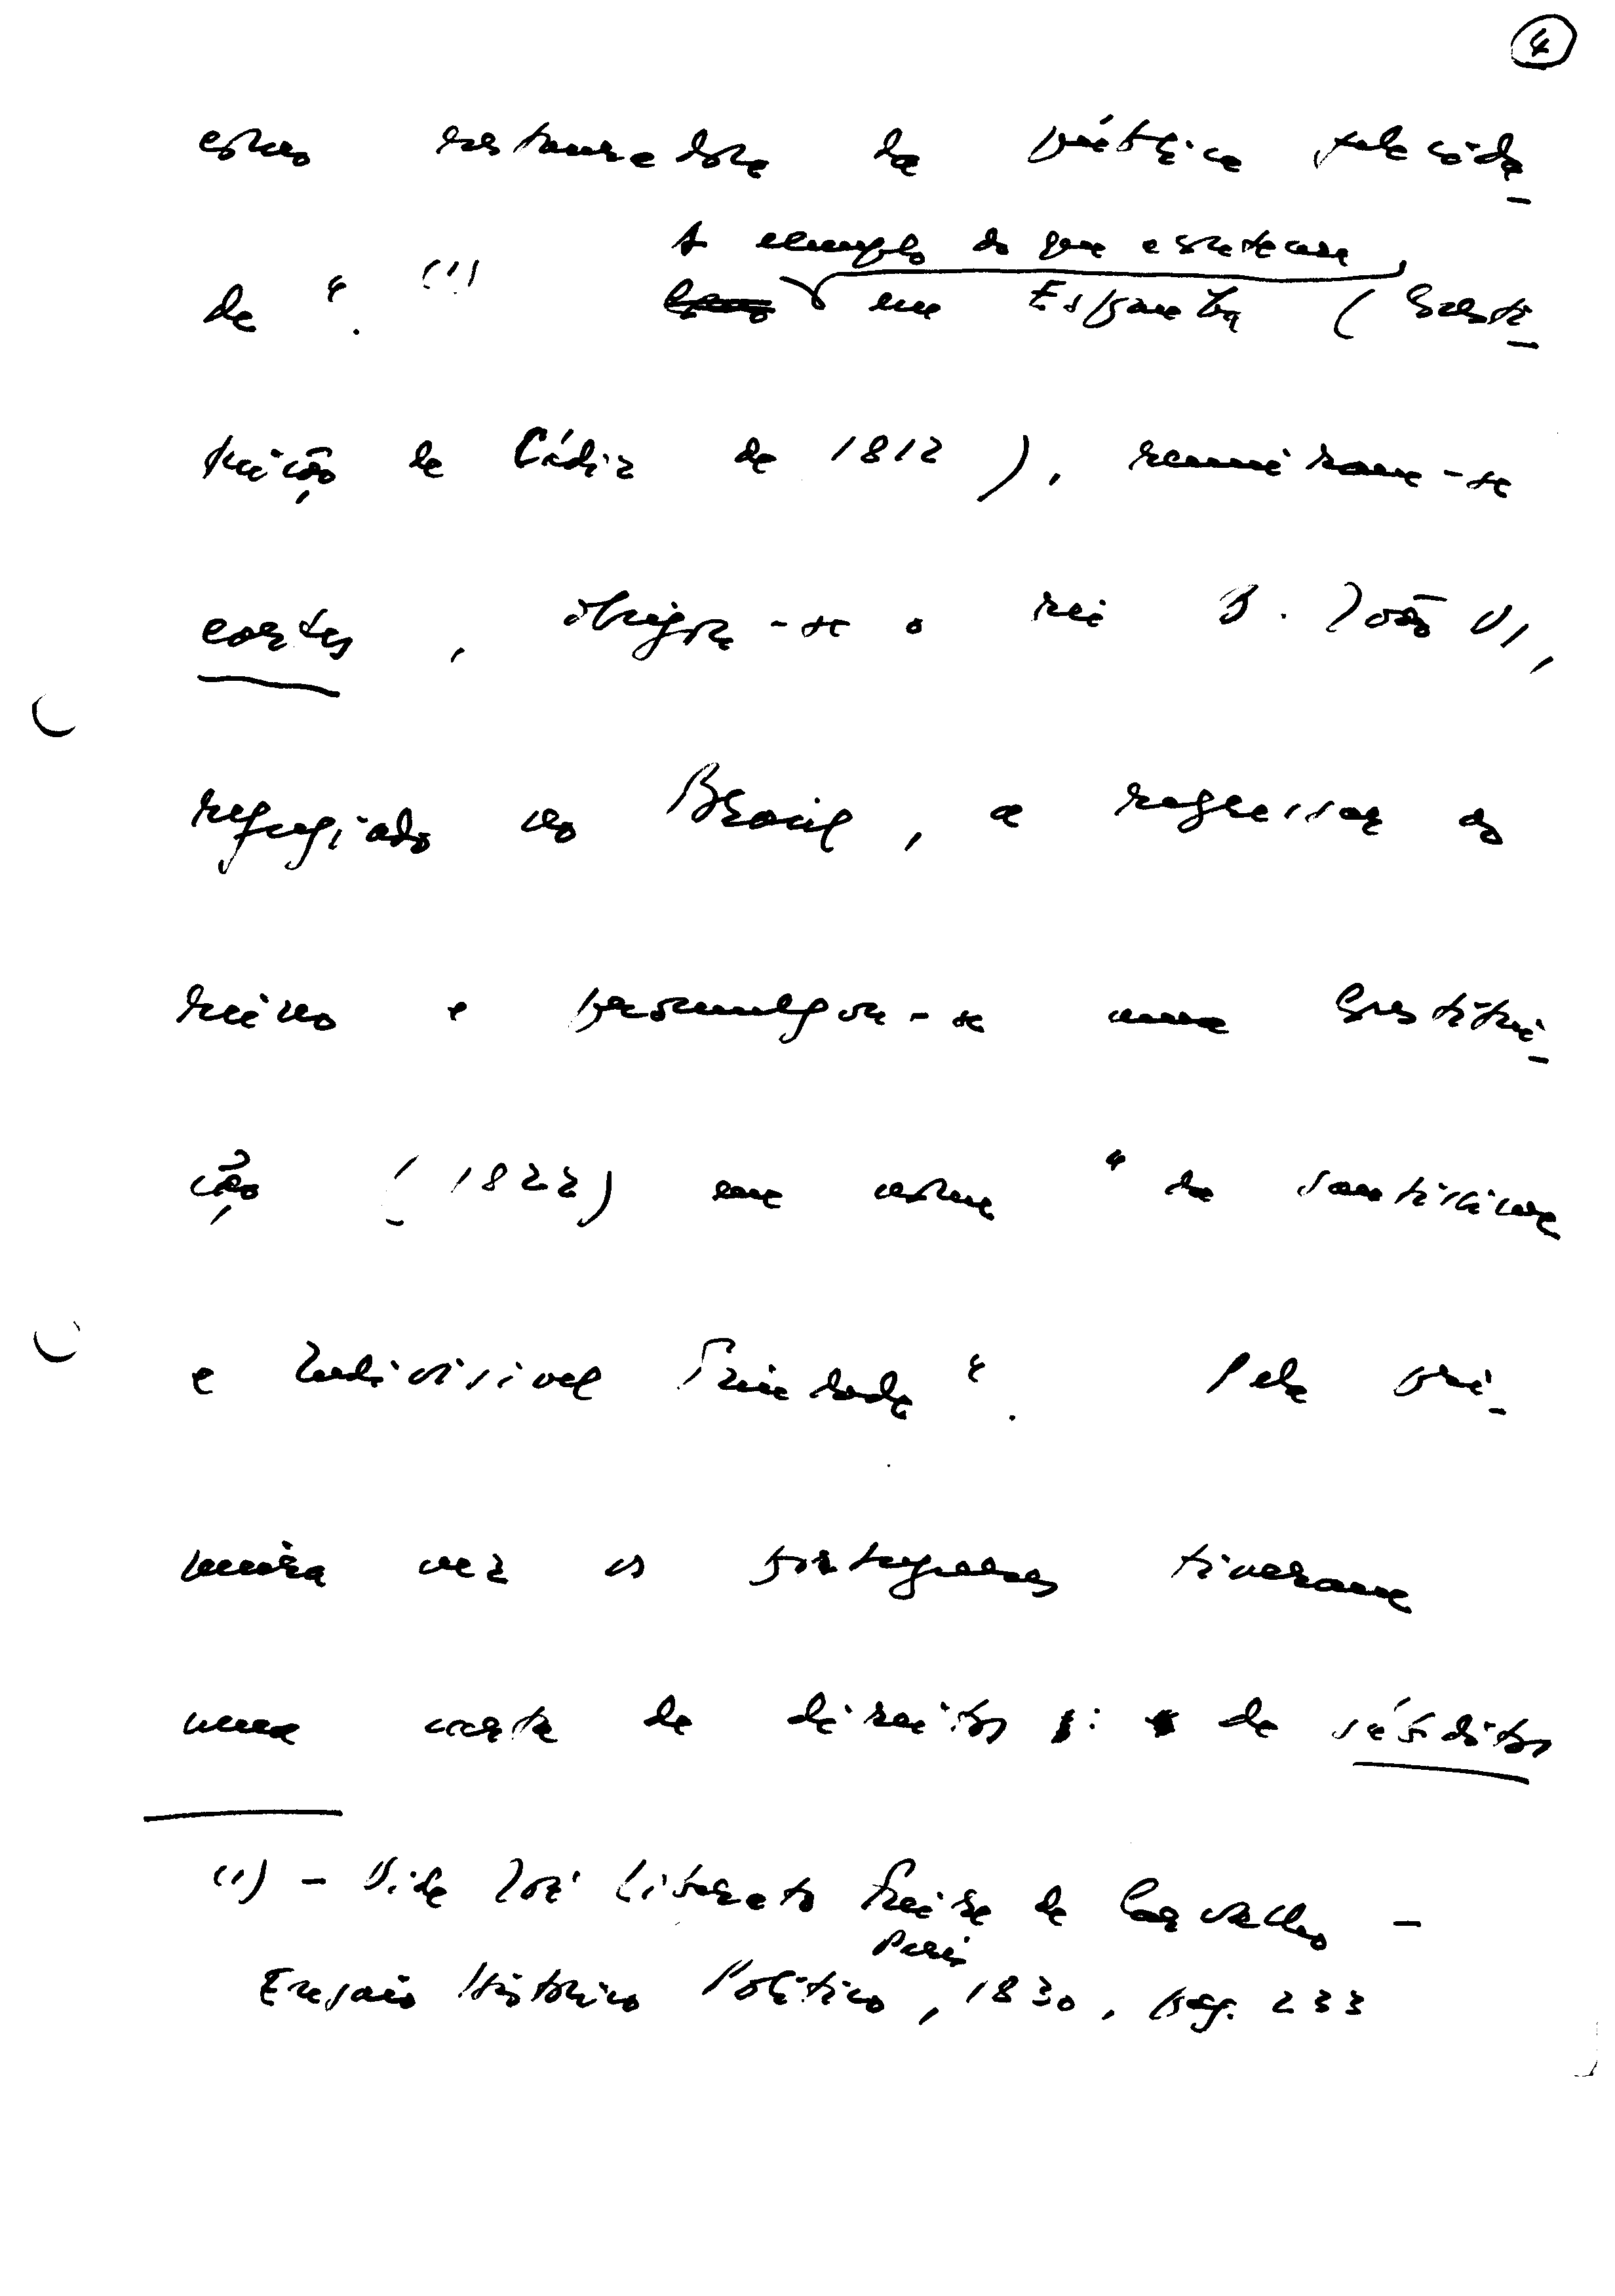 4
como restauradora da pública felicida-
A exemplo do que acontecera,
de". (1) em Espanha (Consti-
tuição de Cádiz de 1812), reuniram-se
cortes, obrigou-se o rei D. João VI,
refugiado no Brasil, a regressar ao
reino e promulgou-se uma Constitui-
ção (1822) em nome "da santíssima
e Indivisível Trindade". Pela pri-
meira vez os portugueses tiveram
uma carta de direitos: de súbditos
(1) - Vide José Liberato Freire de Carvalho -
Paris
Ensaio Histórico Político, 1830, pag. 233